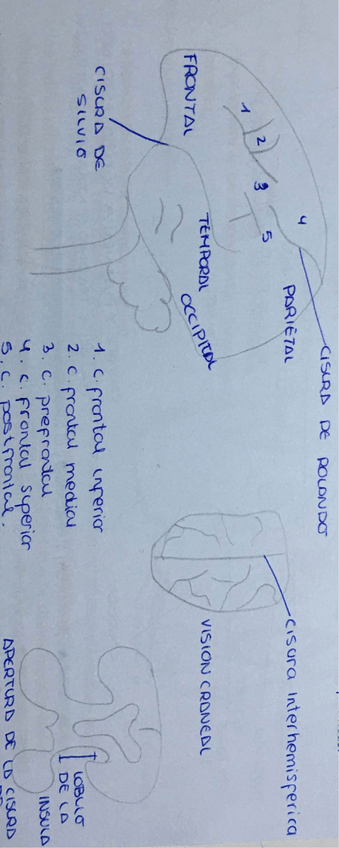 CISURA DE ROLANDO
FRONTAL
PARIETAL
TEMPORAL
OCCIPITAL
1
2
3
4
5
CISURA DE
SILVIO
1. C. frontal inferior
2. C. frontal medial
3. C. prefrontal
4. C. frontal superior
5. C. postfrontal.
Cisura Interhemisferica
VISION CRANEAL
LOBULO
DE LA
INSULA
APERTURA DE LA CISURA